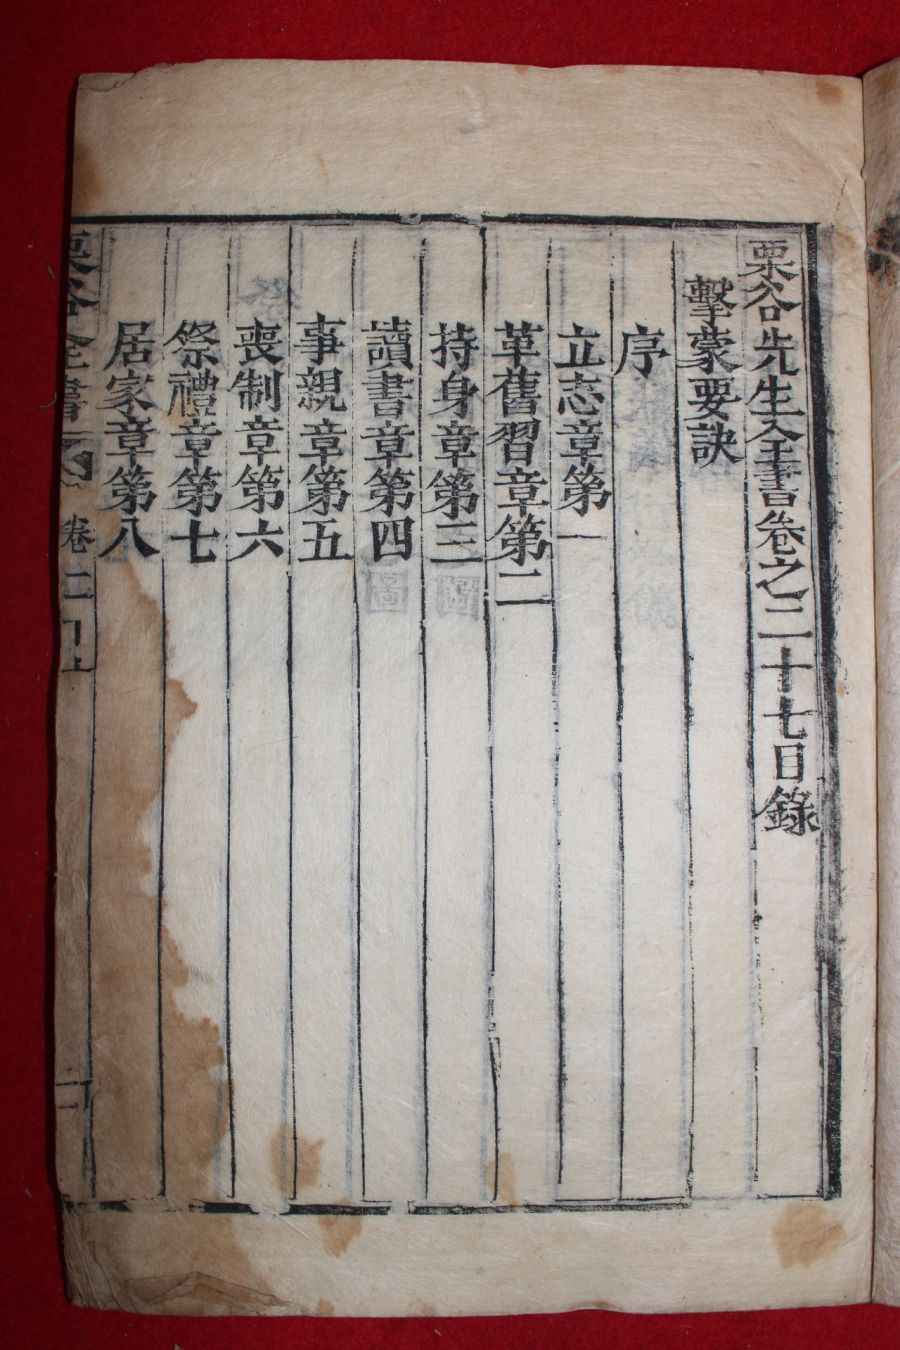 栗谷先生全書卷之二十七目錄
擊蒙要訣
序
立志章第一
革舊習章第二
持身章第三
讀書章第四
事親章第五
喪制章第六
祭禮章第七
居家章第八
栗谷全書
卷二